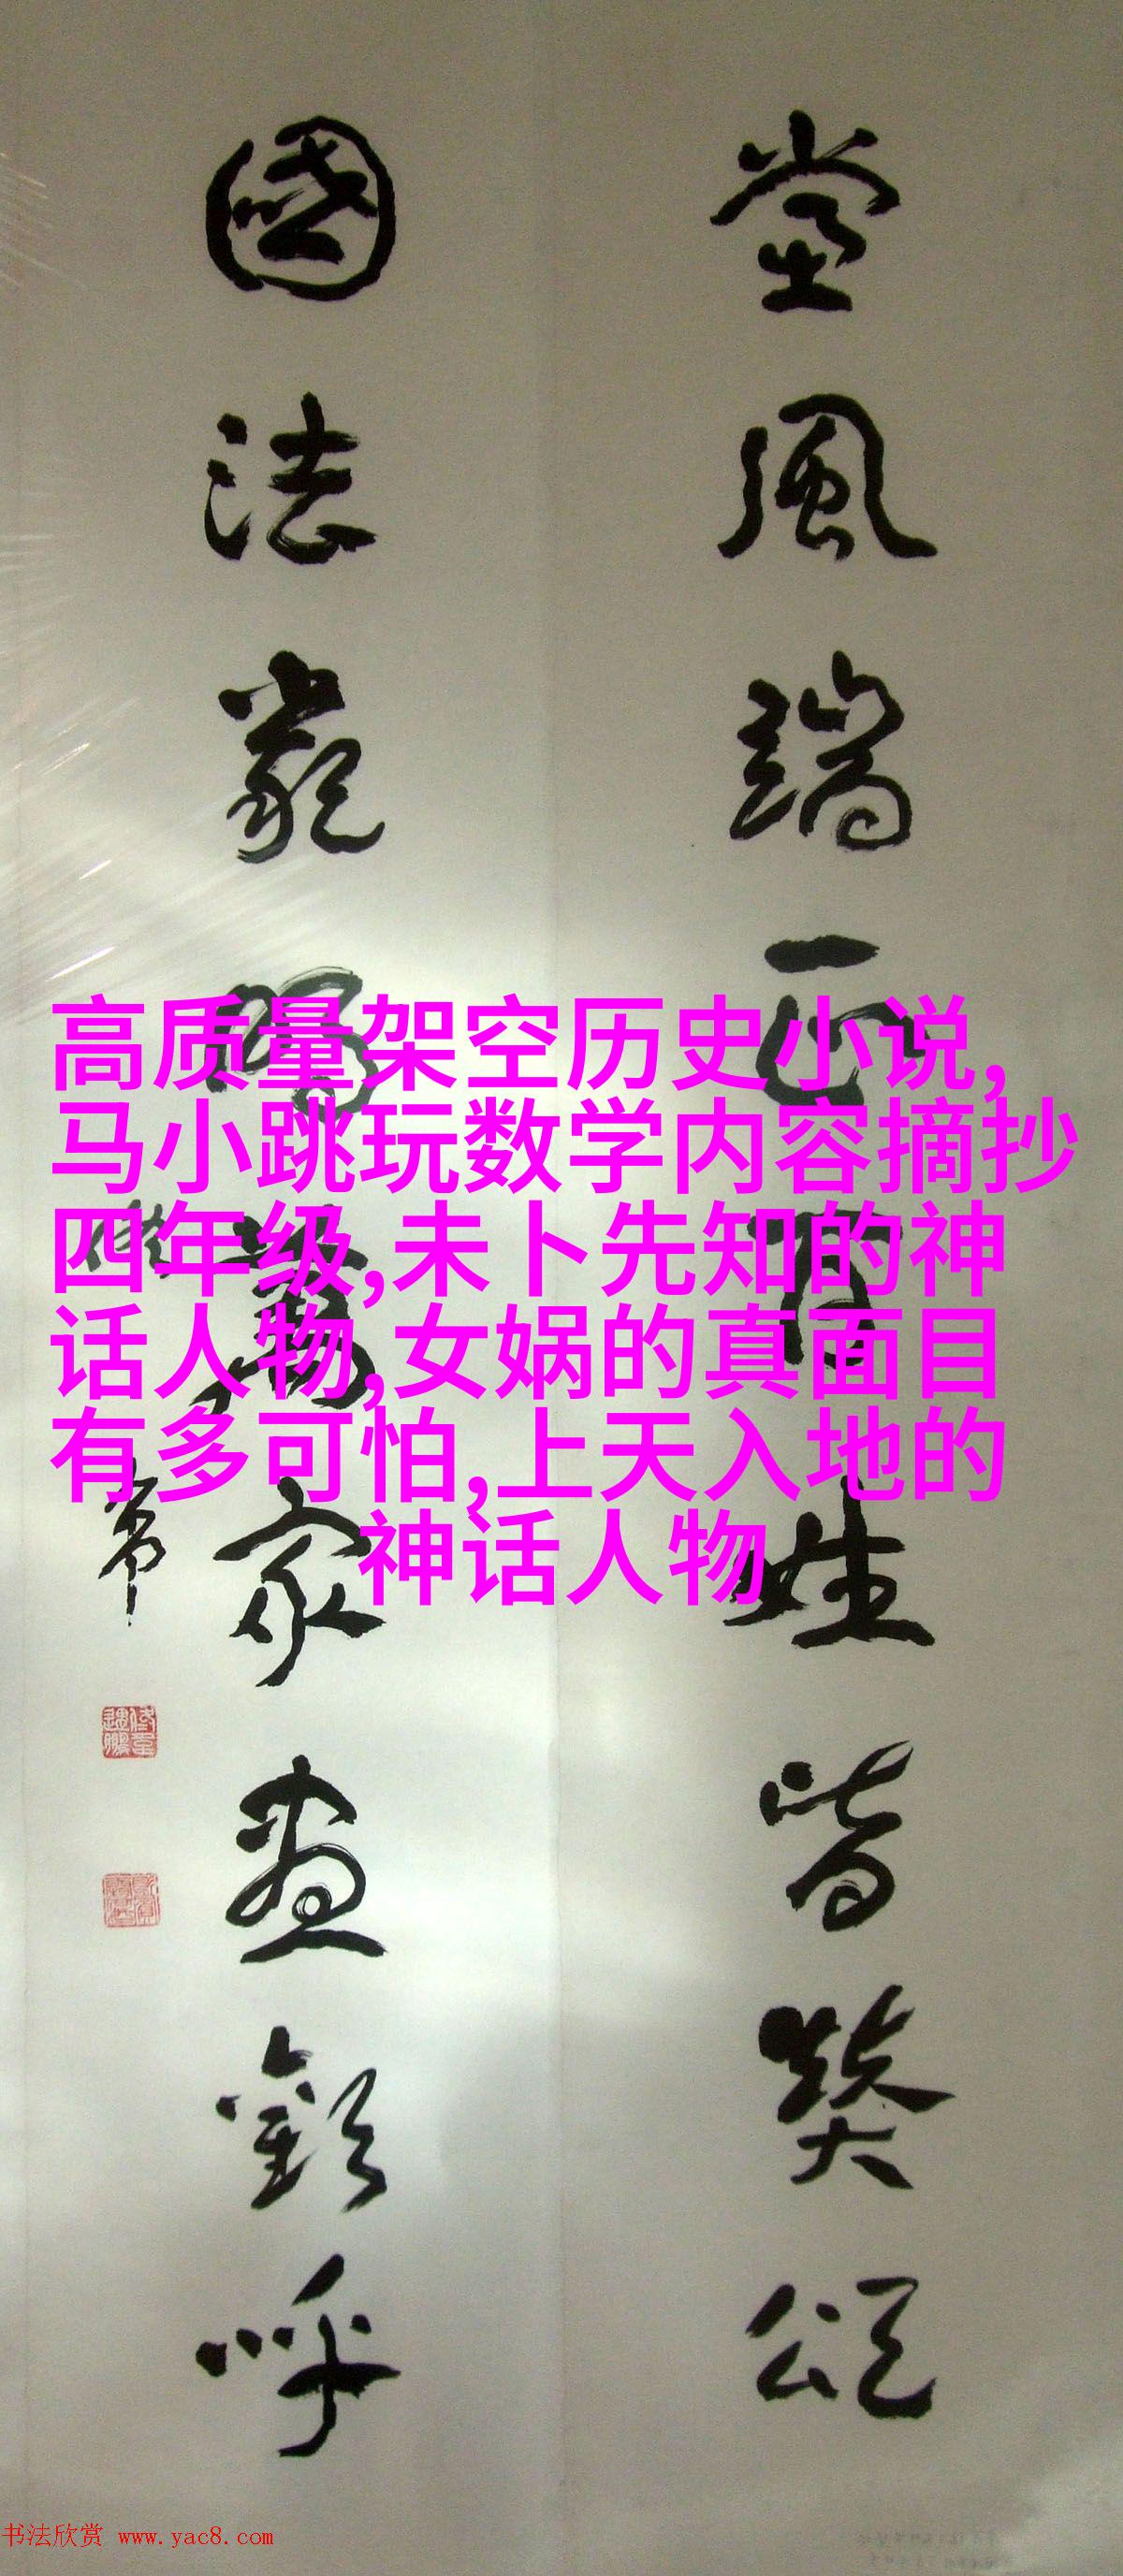 黨風端正百姓皆贊頌
國法嚴明萬家盡歡呼
高质量架空历史小说,
马小跳玩数学内容摘抄
四年级,未卜先知的神
话人物,女娲的真面目
有多可怕,上天入地的
神话人物
书法欣赏 www.yac8.com